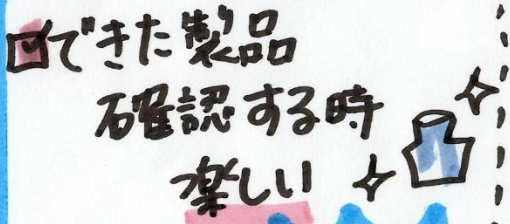 ☑できた製品
確認する時
楽しい